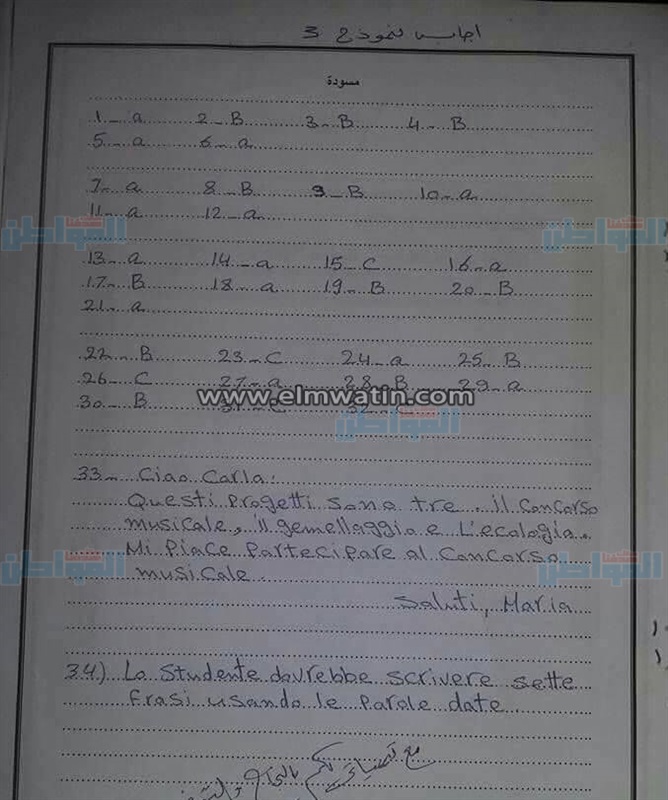 اجابه نموذج 3
مسودة
1 - a 2 - B 3 - B 4 - B
5 - a 6 - a
7 - a 8 - B 9 - B 10 - a
11 - a 12 - a
13 - a 14 - a 15 - C 16 - a
17 - B 18 - a 19 - B 20 - B
21 - a
22 - B 23 - C 24 - a 25 - B
26 - C 27 - a 28 - B 29 - a
www.elmwatin.com
30 - B 31 - C 32 - C
المواطن
33 - Ciao Carla:
Questi Progetti sono tre. il Concorso
musicale, il gemellaggio e L'ecologia.
Mi Piace Partecipare al Concorso
musicale.
Saluti, Maria
34) Lo Studente dovrebbe scrivere sette
frasi usando le Parole date
مع تمنياتي لكم بالنجاح